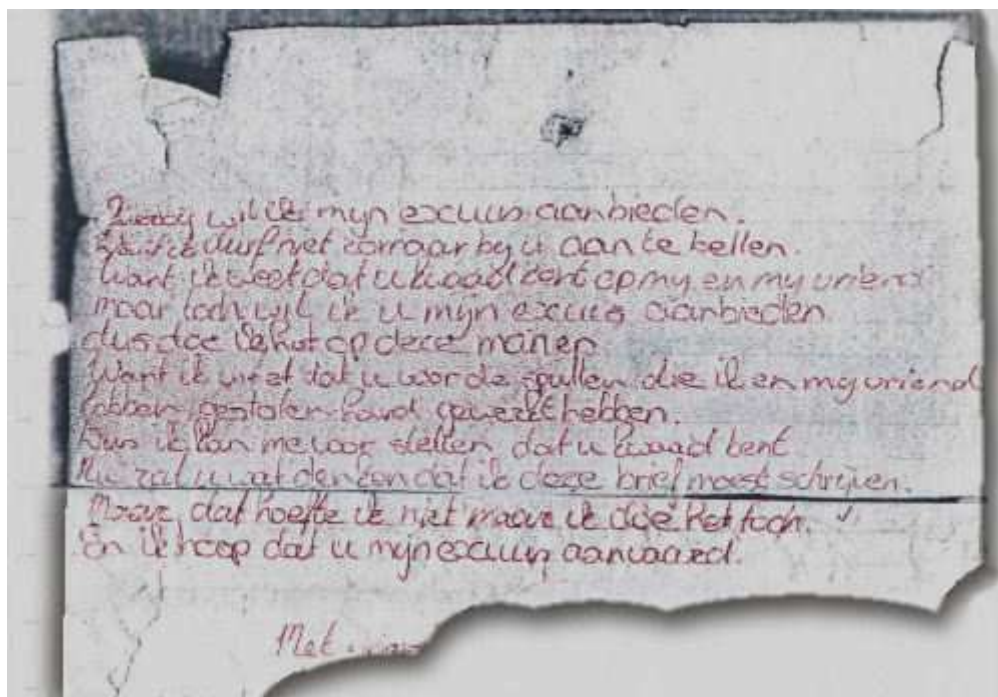 Hierbij wil ik mijn excuus aanbieden.
Want ik durf niet zomaar by u aan te bellen.
Want ik weet dat u kwaad bent op my en my vriend
maar toch wil ik u mijn excuus aanbieden
dus doe ik het op deze manier
Want ik weet dat u voor de spullen die ik en my vriend
hebben gestolen hard gewerkt hebben.
Dus ik kan me voor stellen dat u kwaad bent
Nu zal u wat denken dat ik deze brief moest schrijven.
Maar dat hoefte ik niet maar ik doe het toch.
En ik hoop dat u mijn excuus aanvaard.
Met